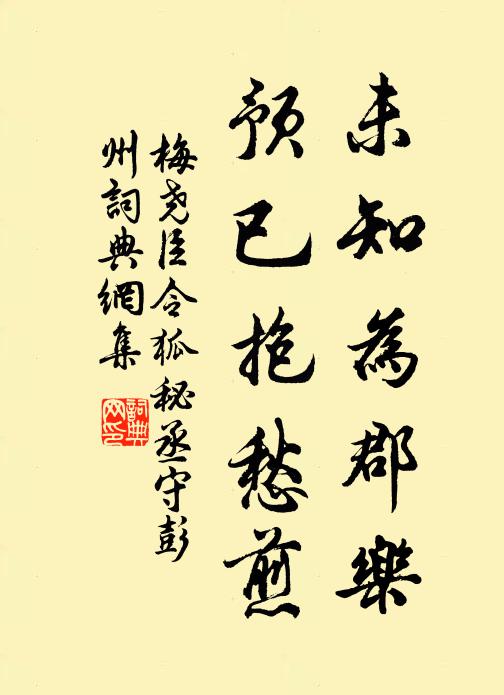 未知為郡樂
預已抱愁煎
梅堯臣令狐秘丞守彭
州詞典網集
詞典網印